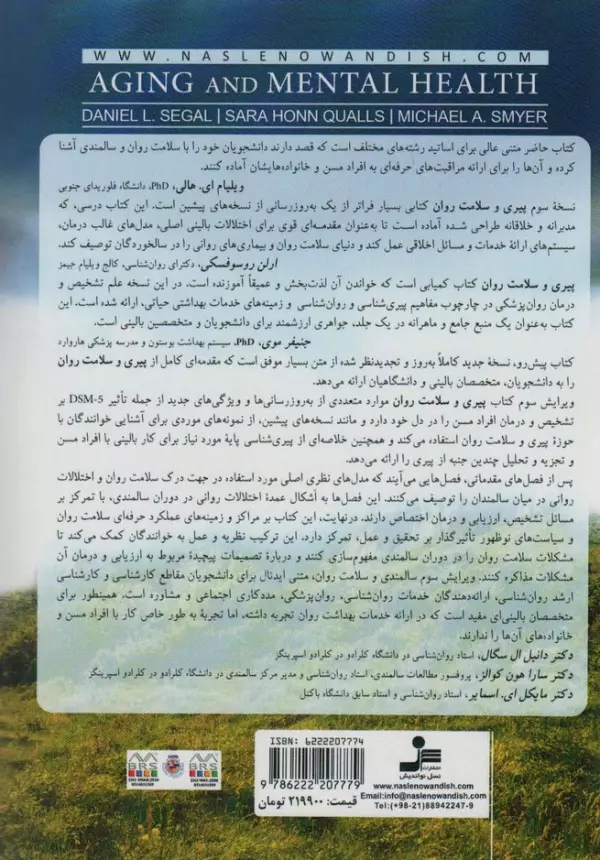 WWW.NASLENOWANDISH.COM
AGING AND MENTAL HEALTH
DANIEL L. SEGAL | SARA HONN QUALLS | MICHAEL A. SMYER
کتاب حاضر متنی عالی برای اساتید رشته‌های مختلف است که قصد دارند دانشجویان خود را با سلامت روان و سالمندی آشنا
کرده و آن‌ها را برای ارائه مراقبت‌های حرفه‌ای به افراد مسن و خانواده‌هایشان آماده کنند.
ویلیام ای. هالی، PhD، دانشگاه فلوریدای جنوبی
نسخهٔ سوم پیری و سلامت روان کتابی بسیار فراتر از یک به‌روزرسانی از نسخه‌های پیشین است. این کتاب درسی، که
مدبرانه و خلاقانه طراحی شده آماده است تا به‌عنوان مقدمه‌ای قوی برای اختلالات بالینی اصلی، مدل‌های غالب درمان،
سیستم‌های ارائه خدمات و مسائل اخلاقی عمل کند و دنیای سلامت روان و بیماری‌های روانی را در سالخوردگان توصیف کند.
ارلن روسوفسکی، دکترای روان‌شناسی، کالج ویلیام جیمز
پیری و سلامت روان کتاب کمیابی است که خواندن آن لذت‌بخش و عمیقاً آموزنده است. در این نسخه علم تشخیص و
درمان روان‌پزشکی در چارچوب مفاهیم پیری‌شناسی و روان‌شناسی و زمینه‌های خدمات بهداشتی حیاتی، ارائه شده است. این
کتاب به‌عنوان یک منبع جامع و ماهرانه در یک جلد، جواهری ارزشمند برای دانشجویان و متخصصین بالینی است.
جنیفر موی، PhD، سیستم بهداشت بوستون و مدرسه پزشکی هاروارد
کتاب پیش‌رو، نسخهٔ جدید کاملاً به‌روز و تجدیدنظر شده از متن بسیار موفق است که مقدمه‌ای کامل از پیری و سلامت روان
را به دانشجویان، متخصصان بالینی و دانشگاهیان ارائه می‌دهد.
ویرایش سوم کتاب پیری و سلامت روان موارد متعددی از به‌روزرسانی‌ها و ویژگی‌های جدید از جمله تأثیر DSM-5 بر
تشخیص و درمان افراد مسن را در دل خود دارد و مانند نسخه‌های پیشین، از نمونه‌های موردی برای آشنایی خوانندگان با
حوزهٔ پیری و سلامت روان استفاده می‌کند و همچنین خلاصه‌ای از پیری‌شناسی پایهٔ مورد نیاز برای کار بالینی با افراد مسن
و تجزیه و تحلیل چندین جنبه از پیری را ارائه می‌دهد.
پس از فصل‌های مقدماتی، فصل‌هایی می‌آیند که مدل‌های نظری اصلی مورد استفاده در جهت درک سلامت روان و اختلالات
روانی در میان سالمندان را توصیف می‌کنند. این فصل‌ها به أشکال عمدهٔ اختلالات روانی در دوران سالمندی، با تمرکز بر
مسائل تشخیص، ارزیابی و درمان اختصاص دارند. درنهایت، این کتاب بر مراکز و زمینه‌های عملکرد حرفه‌ای سلامت روان
و سیاست‌های نوظهور تأثیرگذار بر تحقیق و عمل، تمرکز دارد. این ترکیب نظریه و عمل به خوانندگان کمک می‌کند تا
مشکلات سلامت روان را در دوران سالمندی مفهوم‌سازی کنند و دربارهٔ تصمیمات پیچیدهٔ مربوط به ارزیابی و درمان آن
مشکلات مذاکره کنند. ویرایش سوم سالمندی و سلامت روان، متنی ایدئال برای دانشجویان مقاطع کارشناسی و کارشناسی
ارشد روان‌شناسی، ارائه‌دهندگان خدمات روان‌شناسی، روان‌پزشکی، مددکاری اجتماعی و مشاوره است. همینطور برای
متخصصان بالینی‌ای مفید است که در ارائه خدمات بهداشت روان تجربه داشته، اما تجربهٔ به طور خاص کار با افراد مسن و
خانواده‌های آن‌ها را ندارند.
دکتر دانیل ال سگال، استاد روان‌شناسی در دانشگاه کلرادو در کلرادو اسپرینگز
دکتر سارا هون کوالز، پروفسور مطالعات سالمندی، استاد روان‌شناسی و مدیر مرکز سالمندی در دانشگاه کلرادو در کلرادو اسپرینگز
دکتر مایکل ای. اسمایر، استاد روان‌شناسی و استاد سابق دانشگاه باکنل
ISBN: 6222207774
9 786222 207779
قیمت: ۲۱۹۹۰۰ تومان
BRS
BRS
انتشارات
نسل نواندیش
www.naslenowandish.com
Email:info@naslenowandish.com
Tel:(+98-21)88942247-9